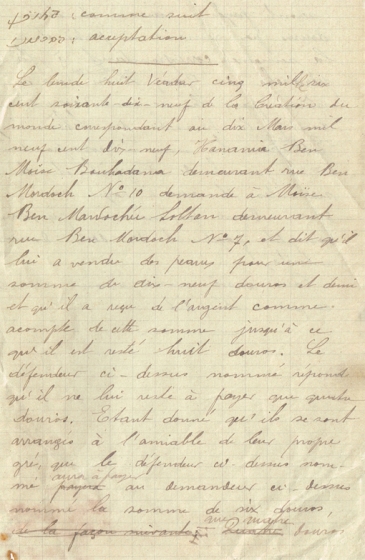 : comme suit
: acceptation
Le lundi huit Véadar cinq mille six
cent soixante-dix-neuf de la Création du
monde correspondant au dix Mars mil
neuf cent dix-neuf, Hanania Ben
Moïse Bouhadana demeurant rue Ben
Mordoch No 10 demande à Moïse
Ben Mardochée demeurant
rue Ben Mordoch No 7, et dit qu'il
lui a vendu des peaux pour une
somme de dix-neuf douros et demi
et qu'il a reçu de l'argent comme
acompte de cette somme jusqu'à ce
qu'il est resté huit douros. Le
défendeur ci-dessus nommé répond
qu'il ne lui reste à payer que quatre
douros. Etant donné qu'ils se sont
arrangés à l'amiable de leur propre
gré, que le défendeur ci-dessus nom-
mé aura à payer au demandeur ci-dessus
nommé la somme de six douros,
de la façon suivante: douros